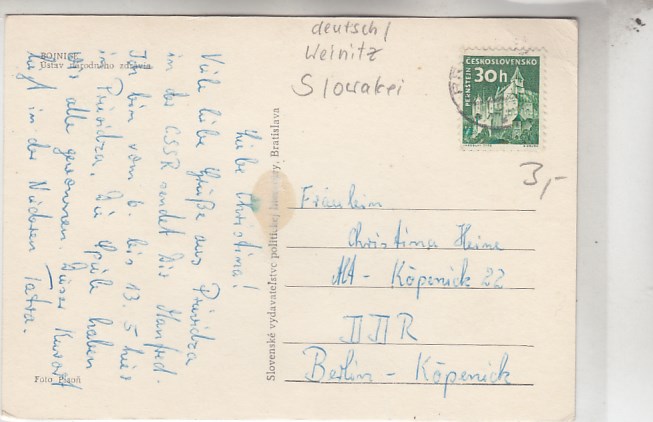 BOJNICE
Ústav národného zdravia
Liebe Christina!
Viele liebe Grüße aus Prievidza
in der ČSSR sendet Dir Manfred.
Ich bin vom 6. bis 13.5 hier
in Prievidza. Die Spiele haben
wir alle gewonnen. Dieser Kurort
liegt in der Niederen Tatra.
Foto Plzoň
Slovenské vydavateľstvo politickej literatúry, Bratislava
deutsch/
Weinitz
Slowakei
ČESKOSLOVENSKO
30h
PERNŠTEJN
3,-
Fräulein
Christina Heine
Alt - Köpenick 22
DDR
Berlin - Köpenick